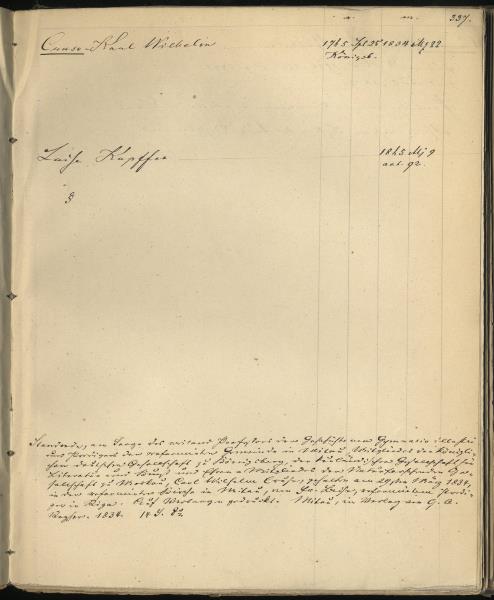 n. m. 337.
Cruse Karl Wilhelm 1765 Spt 25 1834 Mz 22
Königsb.
Luise Kupffer 1865 Mz 9
aet. 92.
§
am Sarge des weiland Professors der Geschichte am Gymnasio illustri
und Predigers der reformirten Gemeinde in Mitau, Mitgliedes der Königli-
chen deutschen Gesellschaft zu Königsberg, der Kurländischen Gesellschaft für
Literatur und Kunst und Mitgliedes der Naturforschenden Ge-
sellschaft zu Moskau, Carl Wilhelm Cruse, gehalten am März 1834,
in der reformirten Kirche in Mitau, von reformirtem Predi-
ger in Riga. Auf Verlangen gedruckt. Mitau, im Verlag von G. A.
Reyher. 1834. 14 S. 8°.